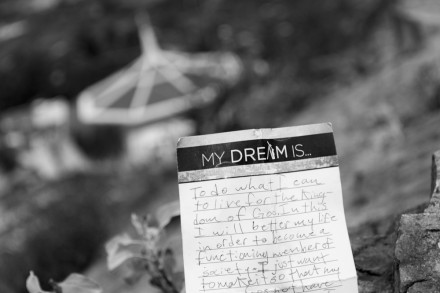 MY DREAM IS...
To do what I can
to live for the King
dom of God in this
I will better my life
in order to become a
functioning member of
society I want
to make
not have